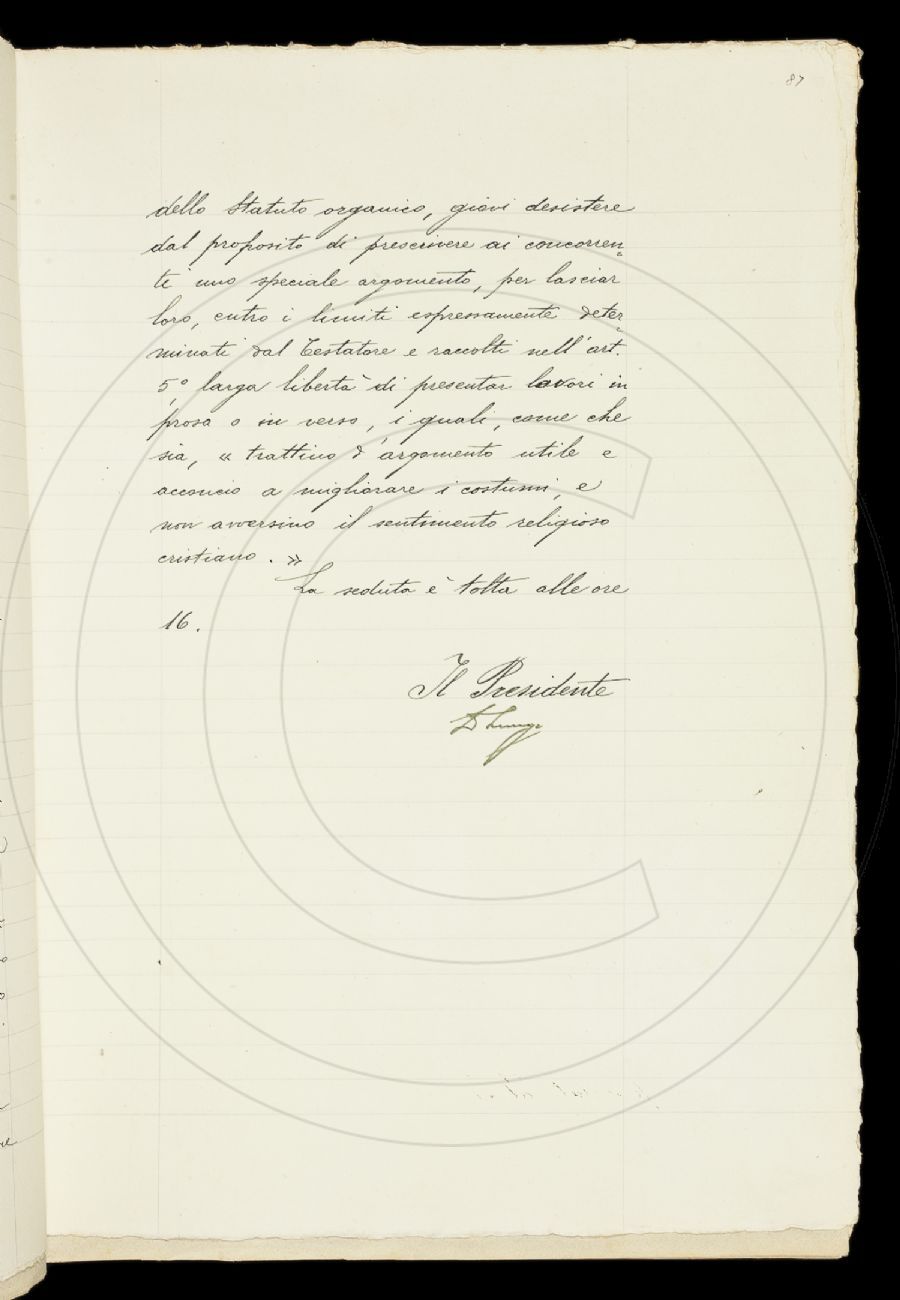 87
dello Statuto organico, giovi desistere
dal proposito di prescrivere ai concorren=
ti uno speciale argomento, per lasciar
loro, entro i limiti espressamente deter=
minati dal Testatore e raccolti nell'art.
5º, larga libertà di presentar lavori in
prosa o in verso, i quali, come che
sia, « trattino d'argomento utile e
acconcio a migliorare i costumi, e
non avversino il sentimento religioso
cristiano. »
La seduta è tolta alle ore
16.
Il Presidente